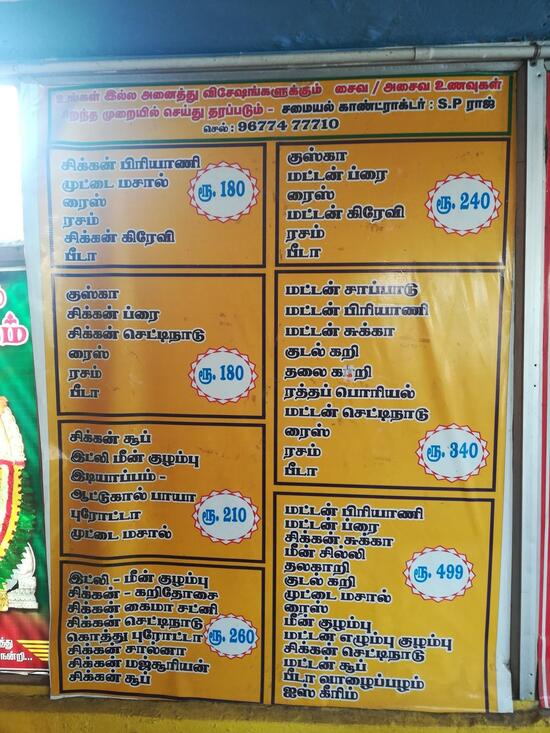 உங்கள் இல்ல அனைத்து விசேஷங்களுக்கும் சைவ / அசைவ உணவுகள்
சிறந்த முறையில் செய்து தரப்படும் - சமையல் காண்ட்ராக்டர் : S.P ராஜ்
செல் : 96774 77710
சிக்கன் பிரியாணி
முட்டை மசால்
ரைஸ்
ரசம்
சிக்கன் கிரேவி
பீடா
ரூ. 180
குஸ்கா
மட்டன் ப்ரை
ரைஸ்
மட்டன் கிரேவி
ரசம்
பீடா
ரூ. 240
குஸ்கா
சிக்கன் ப்ரை
சிக்கன் செட்டிநாடு
ரைஸ்
ரசம்
பீடா
ரூ. 180
மட்டன் சாப்பாடு
மட்டன் பிரியாணி
மட்டன் சுக்கா
குடல் கறி
தலை கறி
ரத்தப் பொரியல்
மட்டன் செட்டிநாடு
ரைஸ்
ரசம்
பீடா
ரூ. 340
சிக்கன் சூப்
இட்லி மீன் குழம்பு
இடியாப்பம் -
ஆட்டுகால் பாயா
புரோட்டா
முட்டை மசால்
ரூ. 210
மட்டன் பிரியாணி
மட்டன் ப்ரை
சிக்கன் சுக்கா
மீன் சில்லி
தலகாறி
குடல் கறி
முட்டை மசால்
ரைஸ்
மீன் குழம்பு
மட்டன் எழும்பு குழம்பு
சிக்கன் செட்டிநாடு
மட்டன் சூப்
பீடா வாழைப்பழம்
ஐஸ் கிரீம்
ரூ. 499
இட்லி - மீன் குழம்பு
சிக்கன் - கறிதோசை
சிக்கன் கைமா சட்னி
சிக்கன் செட்டிநாடு
கொத்து புரோட்டா
சிக்கன் சால்னா
சிக்கன் மஞ்சூரியன்
சிக்கன் சூப்
ரூ. 260